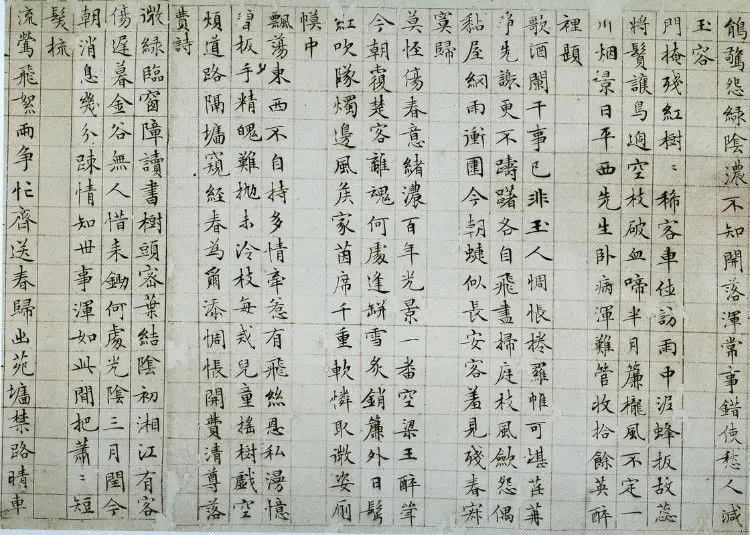 鵑聲怨綠陰濃不知開落渾常事錯使愁人減
玉容
門掩殘紅樹〻稀客車住訪雨中泥蜂扳故蕊
將鬚護鳥過空枝破血啼半月簾櫳風不定一
川烟景日平西先生卧病渾難管收拾餘英醉
裡題
歌酒闌干事已非玉人惆悵捲羅帷可堪荏苒
净先謝更不躊躇各自飛盡掃庭枝風歛怨偶
黏屋網雨衝圍今朝蜨似長安客羞見殘春寂
寞歸
莫恠傷春意緒濃百年光景一番空梁王醉聳
今朝覆楚客離魂何處逢缾雪炙銷簾外日鬂
紅吹隊燭邊風矦家茵席千重軟憐取微姿廁
幙中
飄蕩東西不自持多情牽惹有飛絲恩私漫憶
曾扳手精魄難抛未冷枝每戒兒童搖樹戲空
煩道路隔墻窺經春為爾添惆悵開費清尊落
費詩
微綠臨窗障讀書樹頭密葉結陰初湘江有客
傷遲暮金谷無人惜耒鋤何處光陰三月閏今
朝消息幾分踈情知世事渾如此閒把蕭〻短
髮梳
流鶯飛絮兩爭忙齊送春歸出苑墻禁路晴車